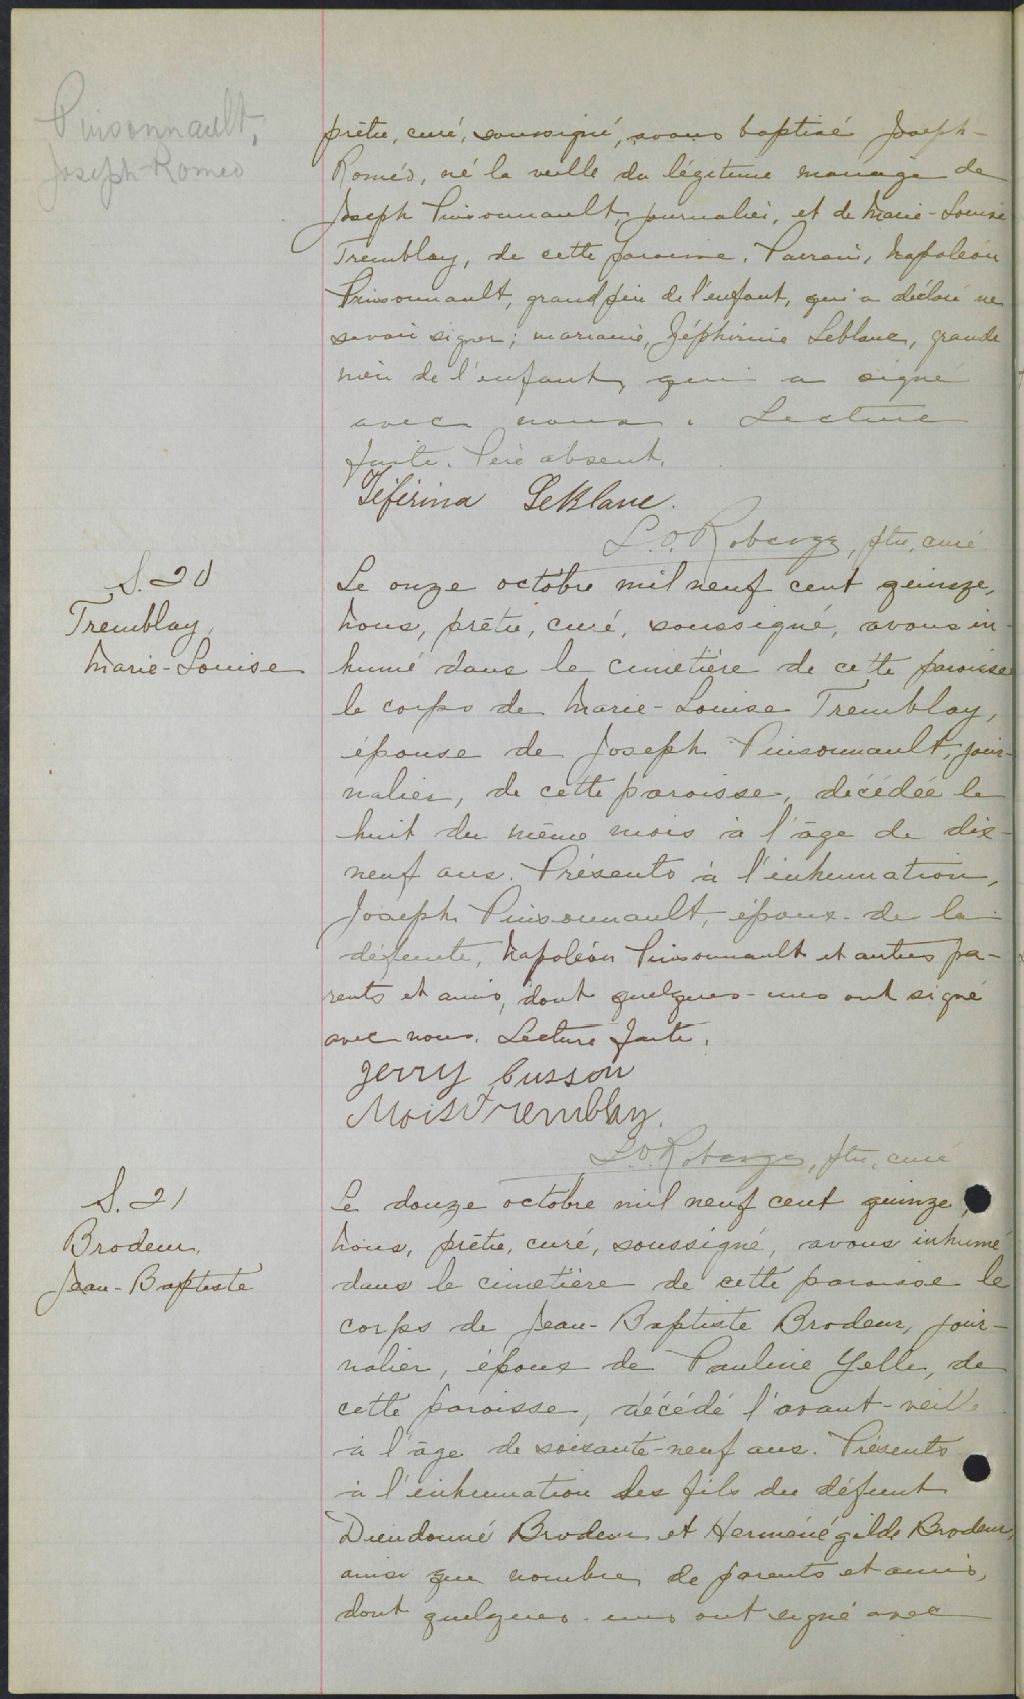 Pinsonnault,
Joseph-Roméo
prêtre, curé, soussigné, avons baptisé Joseph-
Roméo, né la veille du légitime mariage de
Joseph Pinsonnault, journalier, et de Marie-Louise
Tremblay, de cette paroisse. Parrain, Napoléon
Pinsonnault, grand père de l'enfant, qui a déclaré ne
savoir signer; marraine, Zéphirinie Leblanc, grande
mère de l'enfant, qui a signé
avec nous. Lecture
faite. Père absent.
Zéfirina LeBlanc.
L.O. Roberge, ptre, curé
S. 20
Tremblay,
Marie-Louise
Le onze octobre mil neuf cent quinze,
Nous, prêtre, curé, soussigné, avons in-
humé dans le cimetière de cette paroisse
le corps de Marie-Louise Tremblay,
épouse de Joseph Pinsonnault, jour-
nalier, de cette paroisse, décédée le
huit du même mois à l'âge de dix-
neuf ans. Présents à l'inhumation,
Joseph Pinsonnault, époux de la
défunte, Napoléon Pinsonnault et autres pa-
rents et amis, dont quelques-uns ont signé
avec nous. Lecture faite.
Jerry Cusson
Mois Tremblay.
L.O. Roberge, ptre, curé
S. 21
Brodeur,
Jean-Baptiste
Le douze octobre mil neuf cent quinze,
Nous, prêtre, curé, soussigné, avons inhumé
dans le cimetière de cette paroisse le
corps de Jean-Baptiste Brodeur, jour-
nalier, époux de Pauline Yelle, de
cette paroisse, décédé l'avant-veille
à l'âge de soixante-neuf ans. Présents
à l'inhumation les fils du défunt
Dieudonné Brodeur et Herménégilde Brodeur,
ainsi que nombre de parents et amis,
dont quelques-uns ont signé avec